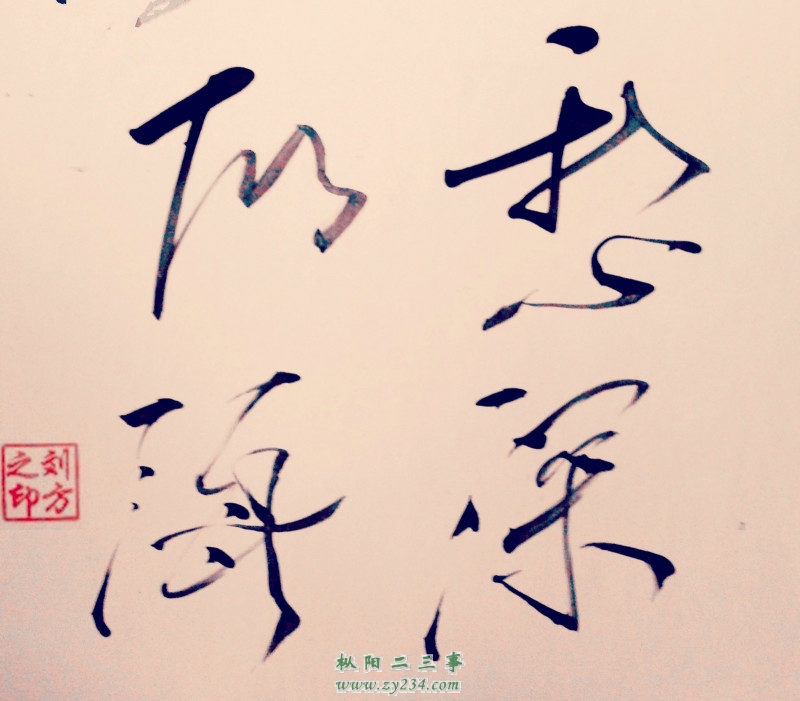 愁深
似海
刘方
之印
枞阳二三事
www.zy234.com